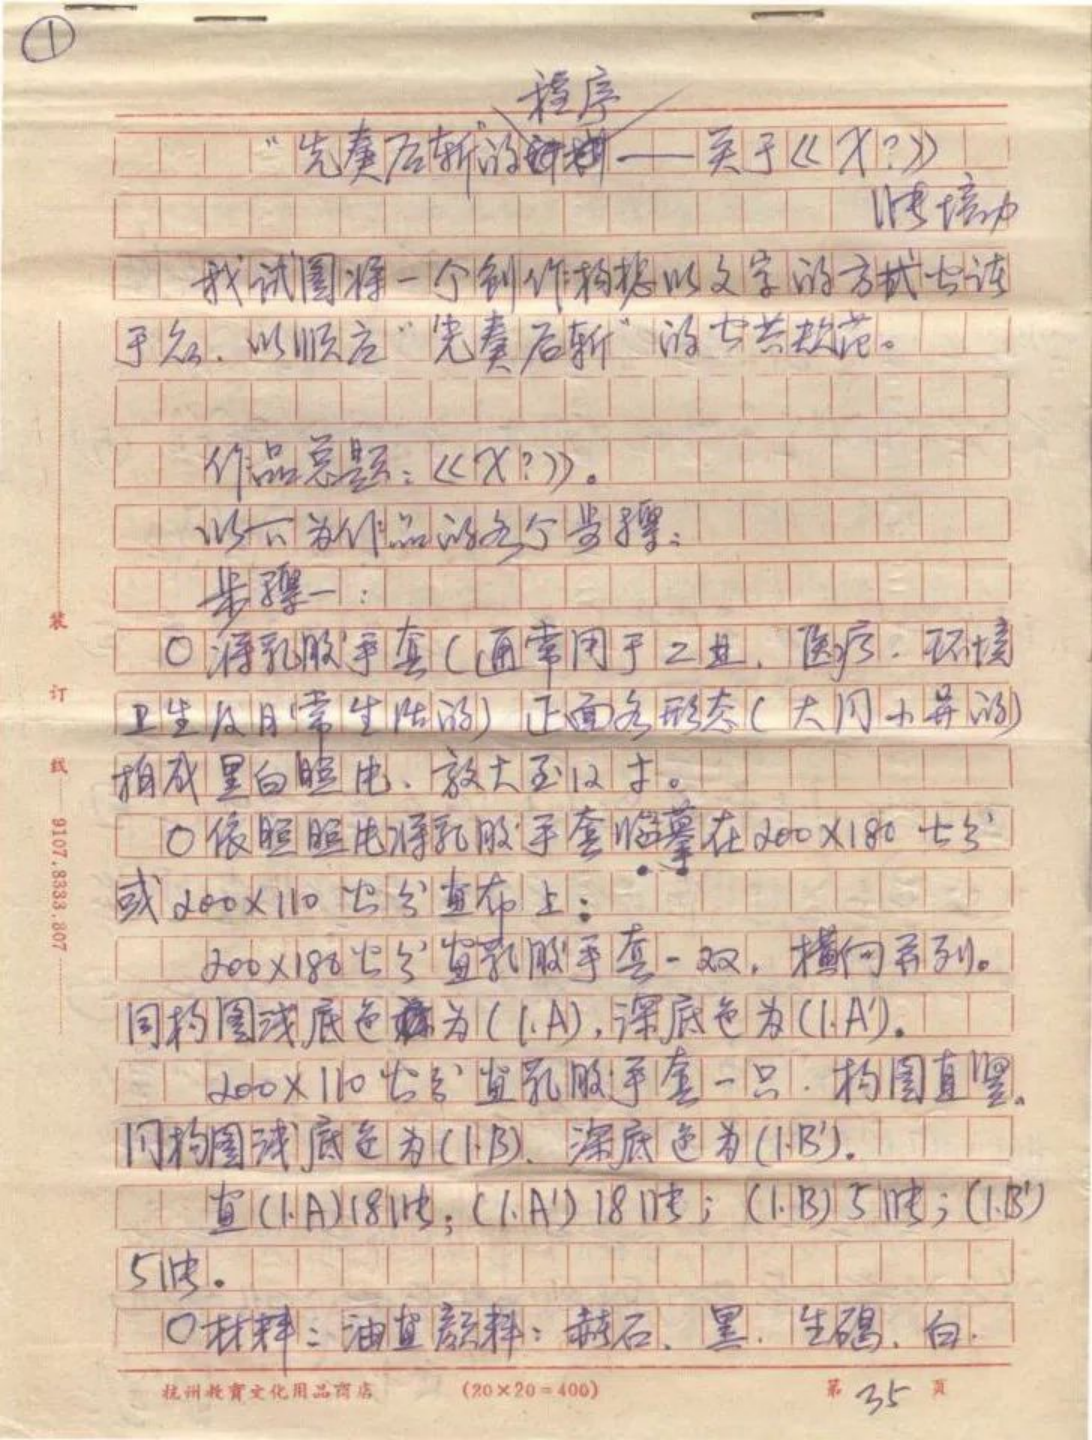 ①
程序
“先奏后斩”的——关于《X?》
张培力
我试图将一个创作构想以文字的方式公诸
于众、以顺应“先奏后斩”的公共规范。
作品总题：《X?》。
以下为作品的各个步骤：
步骤一：
○将乳胶手套（通常用于工业、医疗、环境
卫生及日常生活的）正面各形态（大同小异的）
拍成黑白照片、放大至12寸。
○依照照片将乳胶手套临摹在200×180公分
或200×110公分画布上：
200×180公分画乳胶手套一双，横向并列。
同构图浅底色为(1.A)，深底色为(1.A')。
200×110公分画乳胶手套一只、构图直竖。
同构图浅底色为(1.B)、深底色为(1.B')。
画(1.A)18张；(1.A')18张；(1.B)5张；(1.B')
5张。
○材料：油画颜料：赭石、黑、生褐、白、
装
订
线
9107.8333.807
杭州教育文化用品商店 (20×20=400) 第35页